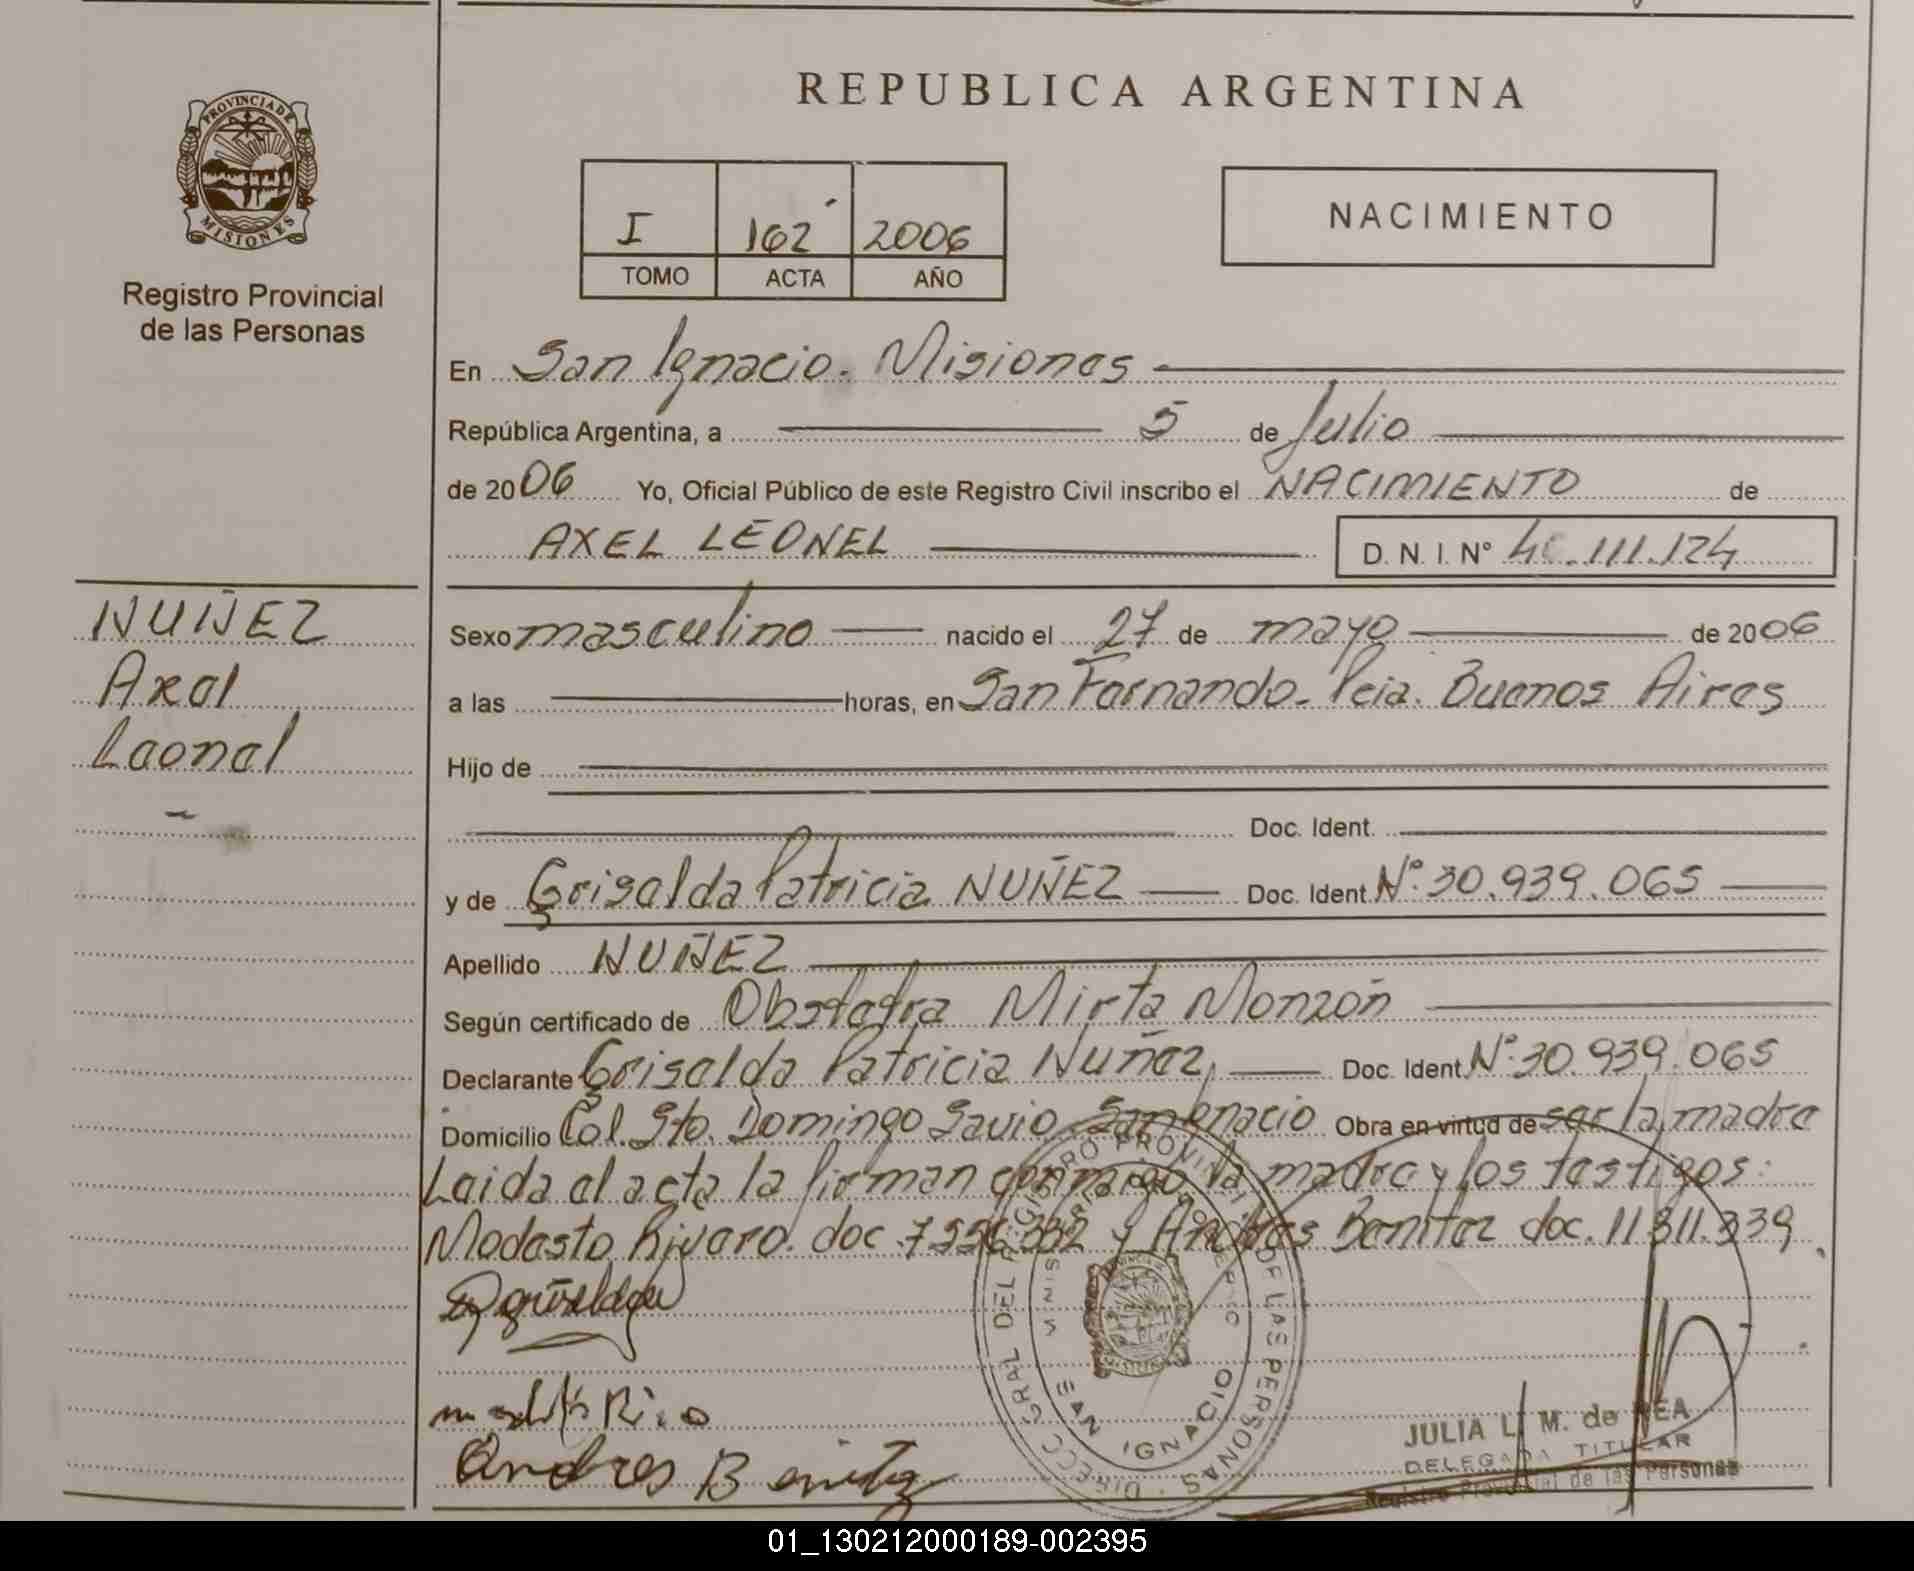 PROVINCIA DE
MISIONES
Registro Provincial
de las Personas
REPUBLICA ARGENTINA
I 162 2006
TOMO ACTA AÑO
NACIMIENTO
En San Ignacio. Misiones
República Argentina, a 5 de Julio
de 2006 Yo, Oficial Público de este Registro Civil inscribo el NACIMIENTO de
AXEL LEONEL D. N. I. N° .111.124
NUÑEZ
Axel
Leonel
Sexo masculino nacido el 27 de mayo de 2006
a las horas, en San Fernando. Pcia. Buenos Aires
Hijo de
Doc. Ident.
y de Griselda Patricia NUÑEZ Doc. Ident. N° 30.939.065
Apellido NUÑEZ
Según certificado de Obstetra Mirta Monzón
Declarante Griselda Patricia Nuñez, Doc. Ident. N° 30.939.065
Domicilio Col. Sto. Domingo Savio San Ignacio Obra en virtud de ser la madre
Leida el acta la firman conmigo la madre y los testigos:
Modesto doc. y Andres Benitez doc. 11.811.339.
Andres Benitez
DIRECC GRAL DEL REGISTRO PROVINCIAL DE LAS PERSONAS
SAN IGNACIO
JULIA L. M. de REA
DELEGADA TITULAR
Registro Provincial de las Personas
01_130212000189-002395